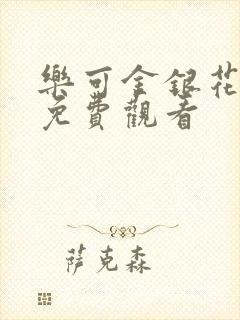 樂可金銀花
免費觀看
萨克森